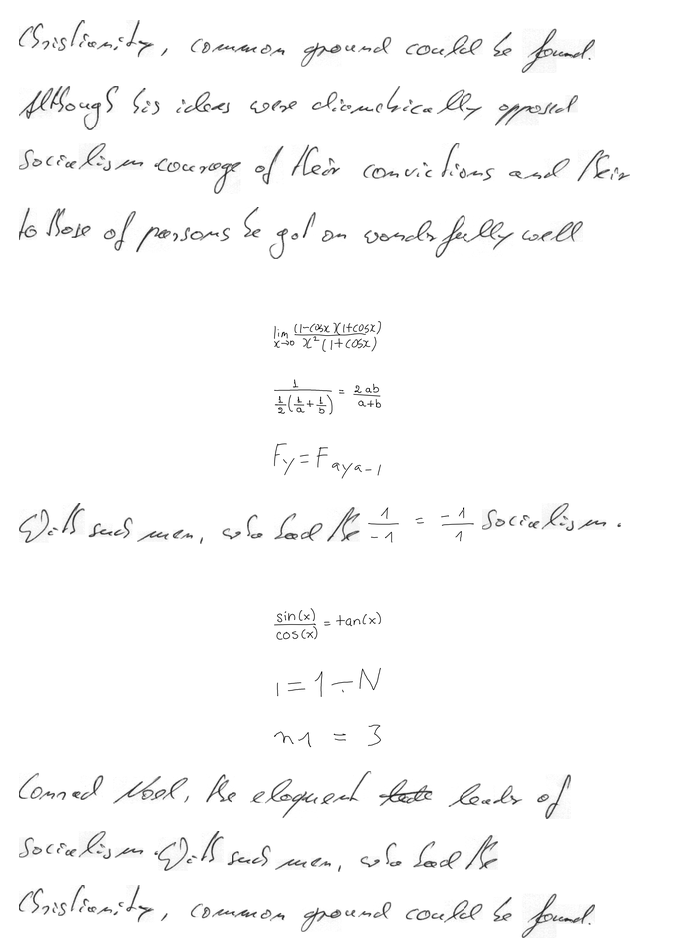 Christianity, common ground could be found.
Although his ideas were diametrically opposed
Socialism courage of their convictions and their
to those of persons he got on wonderfully well
\lim_{x \to 0} \frac{(1-\cos x)(1+\cos x)}{x^2(1+\cos x)}
\frac{1}{\frac{1}{2}(\frac{1}{a}+\frac{1}{b})} = \frac{2ab}{a+b}
F_y = F_{a y a - 1}
With such men, who had the \frac{1}{-1} = \frac{-1}{1} Socialism.
\frac{\sin(x)}{\cos(x)} = \tan(x)
1 = 1 ÷ N
n1 = 3
Conrad Noel, the eloquent leader of
Socialism. With such men, who had the
Christianity, common ground could be found.